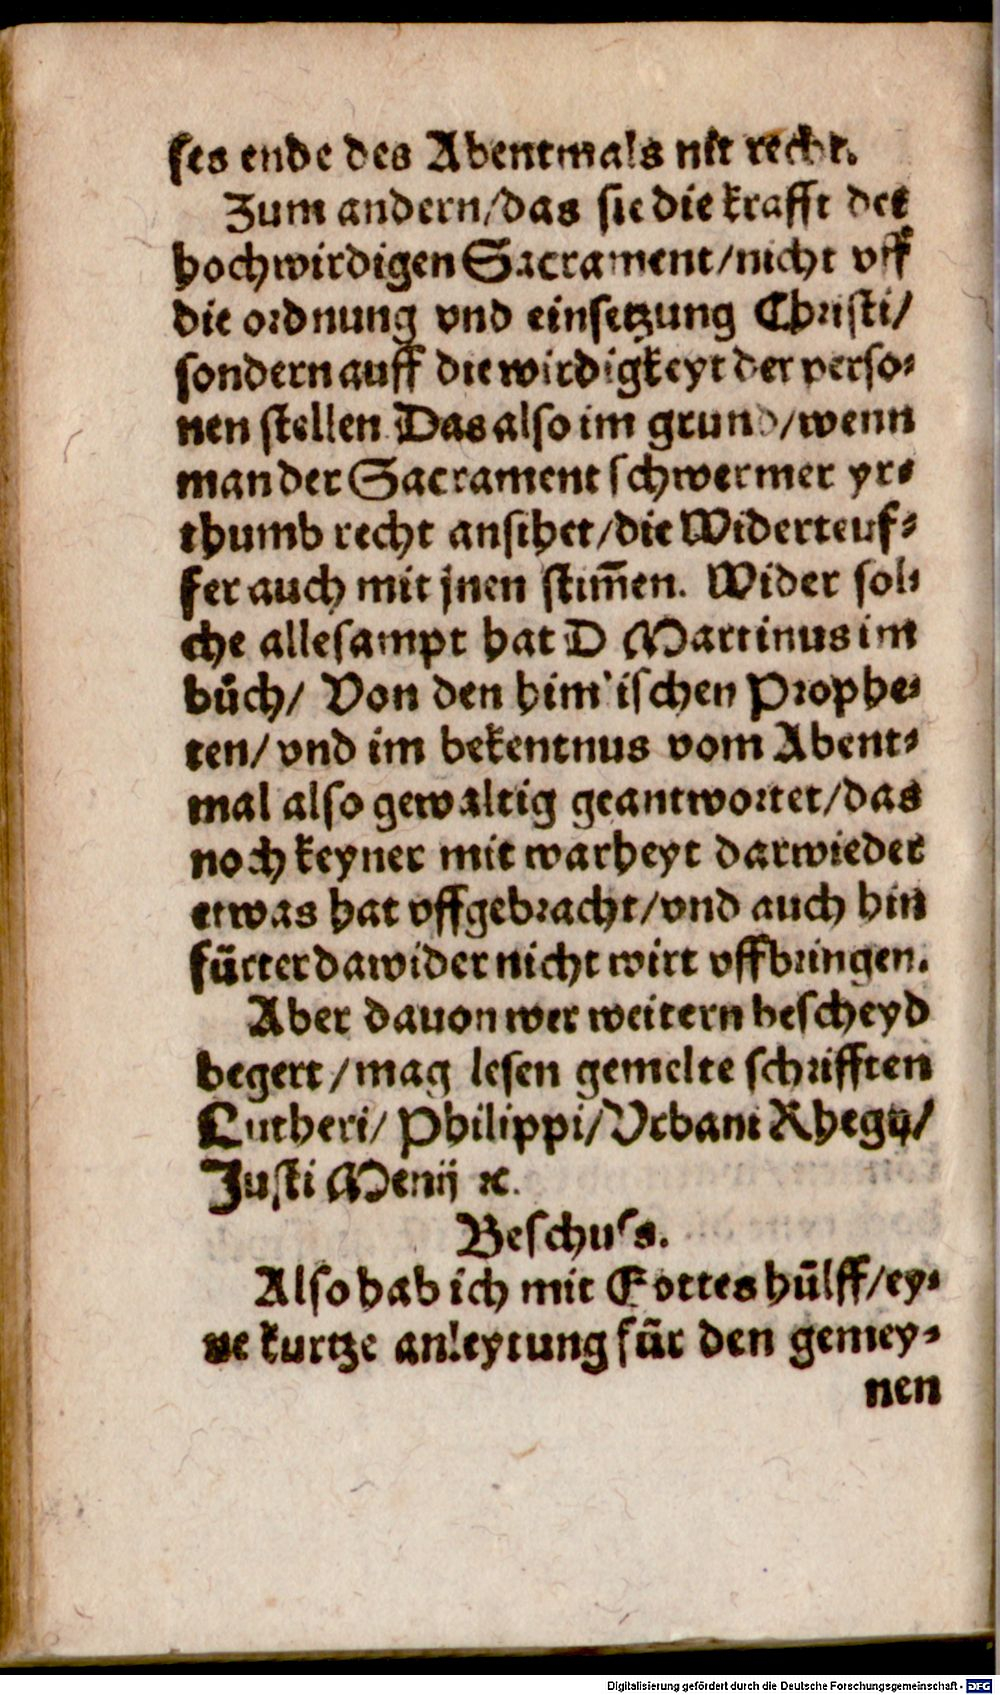 ses ende des Abentmals nit recht.
Zum andern/das sie die krafft der
hochwirdigen Sacrament/nicht vff
die ordnung vnd einsetzung Christi/
sondern auff die wirdigkeyt der perso⸗
nen stellen. Das also im grund/wenn
man der Sacrament schwermer yr⸗
thumb recht ansihet/die Widerteuf⸗
fer auch mit jnen stim̃en. Wider sol⸗
che allesampt hat D Martinus im
bůch/ Von den himlischen Prophe⸗
ten/vnd im bekentnus vom Abent⸗
mal also gewaltig geantwortet/das
noch keyner mit warheyt darwieder
etwas hat vffgebracht/vnd auch hin
fürter dawider nicht wirt vffbringen.
Aber dauon wer weitern bescheyd
begert/mag lesen gemelte schrifften
Lutheri/ Philippi/Vrbani Rhegij/
Justi Menij ⁊c.
Beschuss.
Also hab ich mit Gottes hülff/ey⸗
ne kurtze anleytung für den gemey⸗
nen
Digitalisierung gefördert durch die Deutsche Forschungsgemeinschaft - DFG